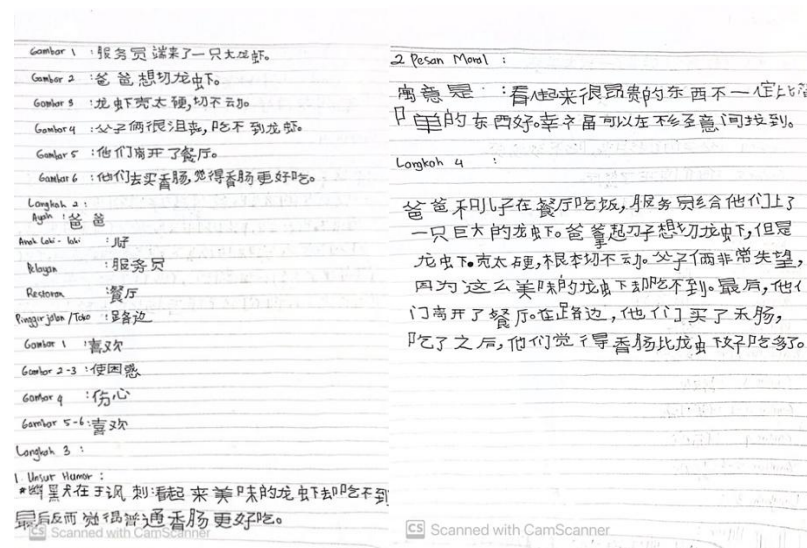 Gambar 1 : 服务员端来了一只大龙虾。
Gambar 2 : 爸爸想切龙虾下。
Gambar 3 : 龙虾壳太硬,切不动。
Gambar 4 : 父子俩很沮丧,吃不到龙虾。
Gambar 5 : 他们离开了餐厅。
Gambar 6 : 他们去买香肠,觉得香肠更好吃。
Langkah 2 :
Ayah : 爸爸
Anak Laki-laki : 儿子
Pelayan : 服务员
Restoran : 餐厅
Pinggir jalan /Toko : 路边
Gambar 1 : 喜欢
Gambar 2-3 : 使困惑
Gambar 4 : 伤心
Gambar 5-6 : 喜欢
Langkah 3 :
1. Unsur Humor :
* 幽默点在于讽刺:看起来美味的龙虾却吃不到
最后反而觉得普通香肠更好吃。
CS Scanned with CamScanner
2 Pesan Moral :
寓意是 : 看起来很昂贵的东西不一定比简
单的东西好。幸福可以在不经意间找到。
Langkah 4 :
爸爸和儿子在餐厅吃饭,服务员给他们上了
一只巨大的龙虾。爸爸拿起刀子想切龙虾,但是
龙虾壳太硬,根本切不动。父子俩非常失望,
因为这么美味的龙虾却吃不到。最后,他们
门离开了餐厅。在路边,他们买了香肠,
吃了之后,他们觉得香肠比龙虾好吃多了。
CS Scanned with CamScanner